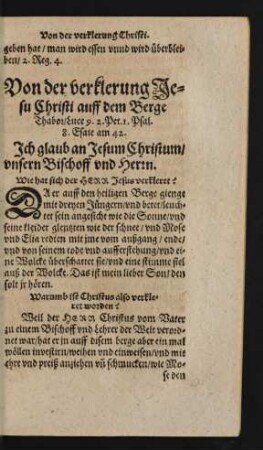 Von der verklerung Christi.
geben hat / man wird essen vnnd wird überblei-
ben / 2. Reg. 4.
Von der verklerung Je-
su Christi auff dem Berge
Thabor / Luce 9. 2. Pet. 1. Psal.
8. Esaie am 42.
Jch glaub an Jesum Christum /
vnsern Bischoff vnd Herrn.
Wie hat sich der HERR Jesus verkleret?
DA er auff den heiligen Berge gienge
mit dreyen Jüngern / vnd betet / leuch-
tet sein angesicht wie die Sonne / vnd
seine kleider glentzten wie der schnee / vnd Mose
vnd Elia redten mit jme vom außgang / ende /
vnd von seinem tode vnd aufferstehung / vnd ei-
ne Wolcke überschattet sie / vnd eine stimme fiel
auß der Wolcke. Das ist mein lieber Son / den
solt jr hören.
Warumb ist Christus also verkle-
ret worden?
Weil der HERR Christus vom Vater
zu einem Bischoff vnd Lehrer der Welt verord-
net war / hat er jn auff disem berge aber ein mal
wöllen investirn / weihen vnd einweisen / vnd mit
ehre vnd preiß anziehen vñ schmucken / wie Mo-
se den